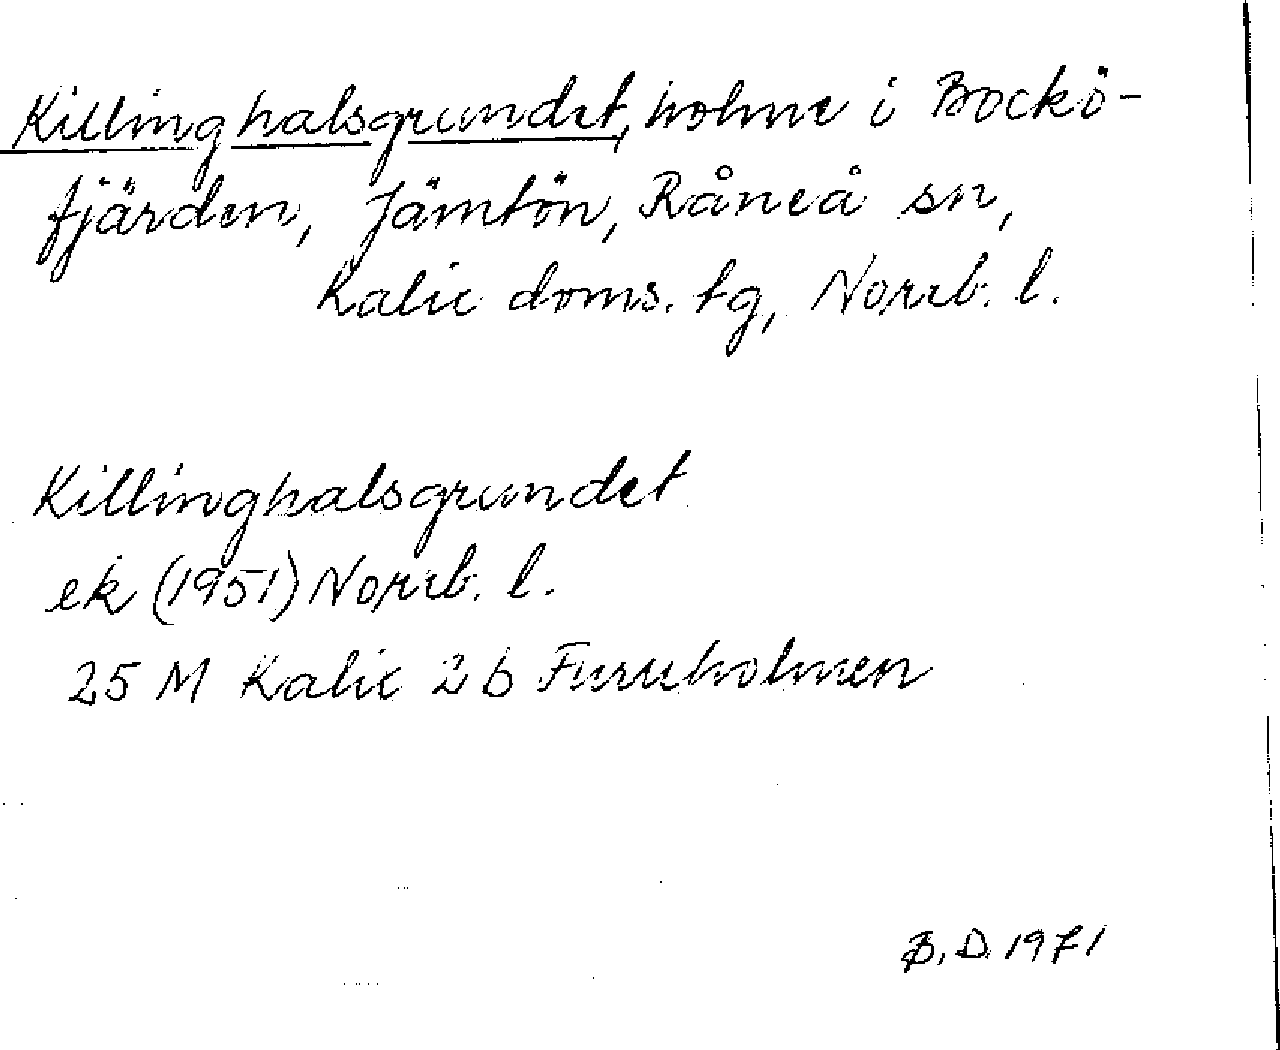 Killinghalsgrundet, holme i Bockö-
fjärden, Jämtön, Råneå sn,
Kalix doms. tg, Norrb. l.
Killinghalsgrundet
ek (1951) Norrb. l.
25 M Kalix 2b Furuholmen
B.D. 1971